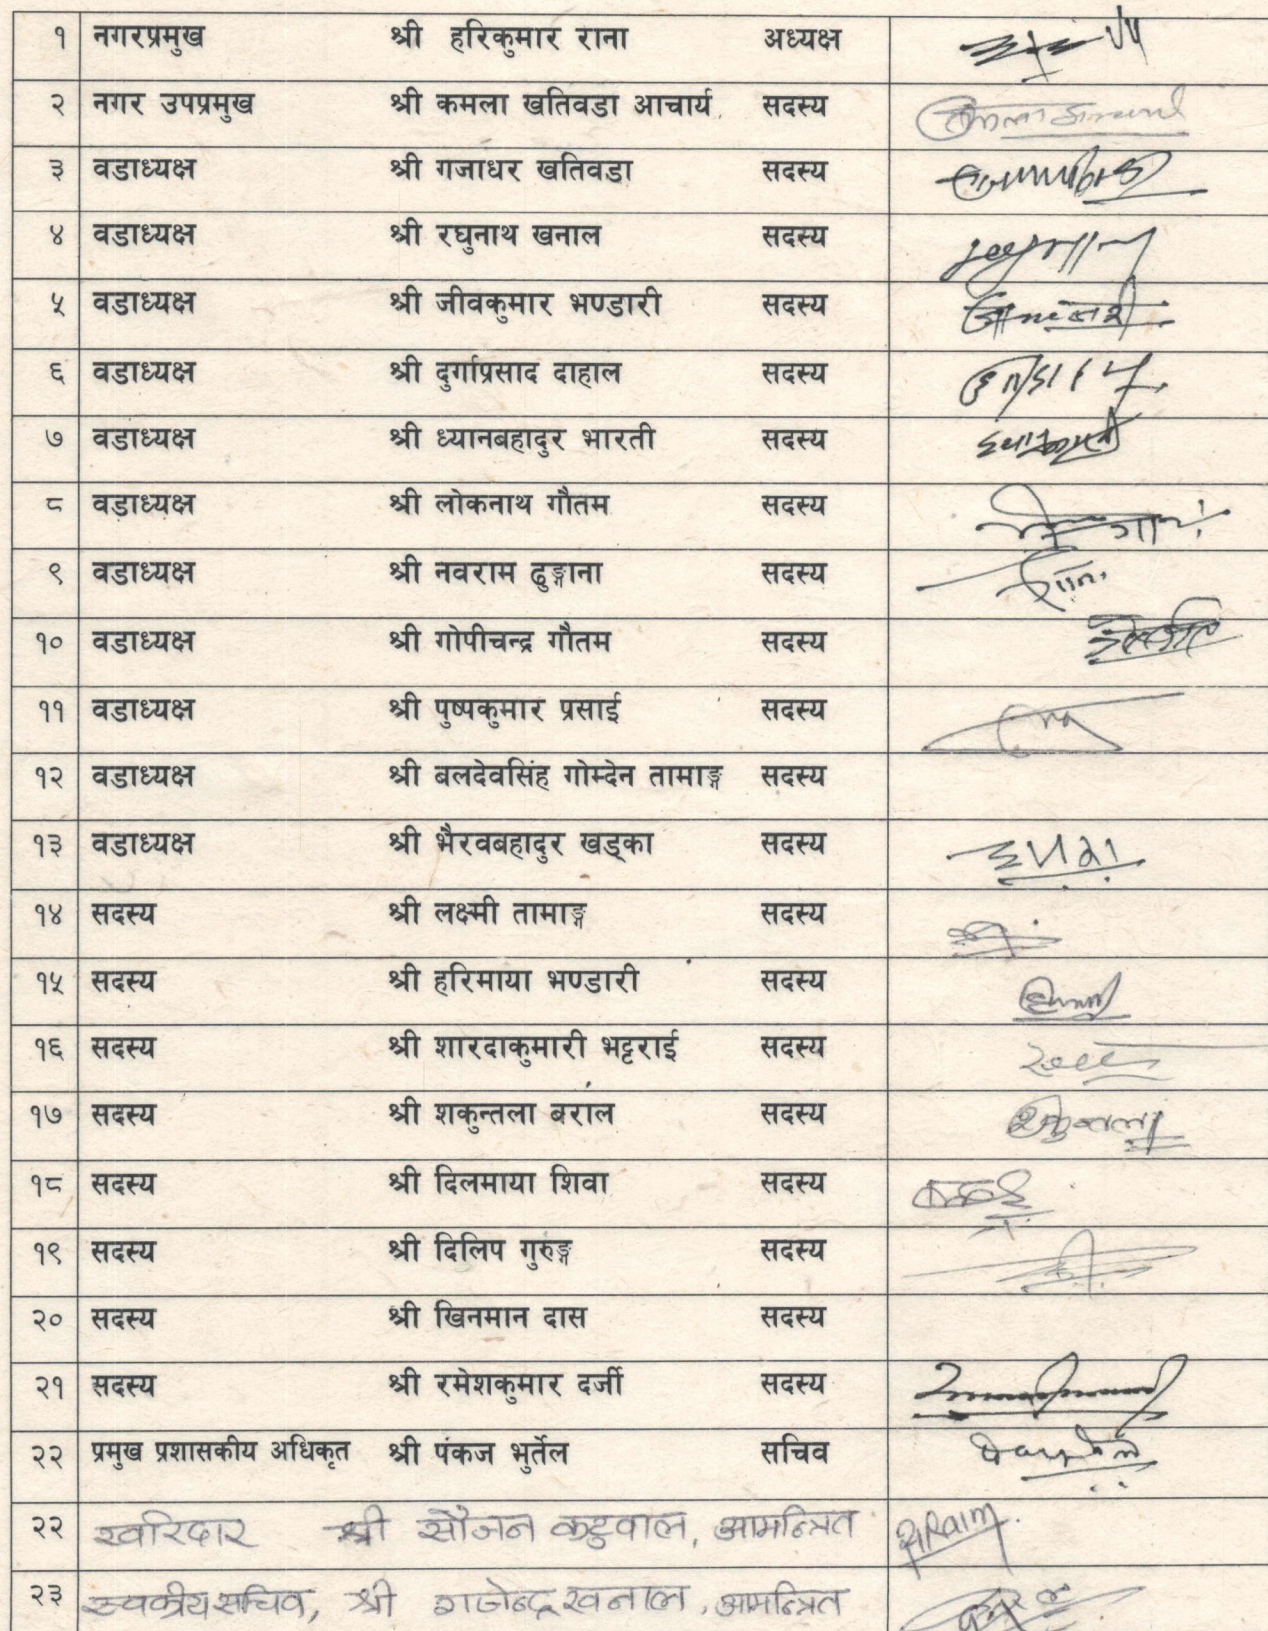 १ नगरप्रमुख श्री हरिकुमार राना अध्यक्ष
२ नगर उपप्रमुख श्री कमला खतिवडा आचार्य सदस्य
३ वडाध्यक्ष श्री गजाधर खतिवडा सदस्य
४ वडाध्यक्ष श्री रघुनाथ खनाल सदस्य
५ वडाध्यक्ष श्री जीवकुमार भण्डारी सदस्य
६ वडाध्यक्ष श्री दुर्गाप्रसाद दाहाल सदस्य
७ वडाध्यक्ष श्री ध्यानबहादुर भारती सदस्य
८ वडाध्यक्ष श्री लोकनाथ गौतम सदस्य
९ वडाध्यक्ष श्री नवराम ढुङ्गाना सदस्य
१० वडाध्यक्ष श्री गोपीचन्द्र गौतम सदस्य
११ वडाध्यक्ष श्री पुष्पकुमार प्रसाई सदस्य
१२ वडाध्यक्ष श्री बलदेवसिंह गोम्देन तामाङ्ग सदस्य
१३ वडाध्यक्ष श्री भैरवबहादुर खड्का सदस्य
१४ सदस्य श्री लक्ष्मी तामाङ्ग सदस्य
१५ सदस्य श्री हरिमाया भण्डारी सदस्य
१६ सदस्य श्री शारदाकुमारी भट्टराई सदस्य
१७ सदस्य श्री शकुन्तला बराल सदस्य शकुन्तला
१८ सदस्य श्री दिलमाया शिवा सदस्य
१९ सदस्य श्री दिलिप गुरुङ्ग सदस्य
२० सदस्य श्री खिनमान दास सदस्य
२१ सदस्य श्री रमेशकुमार दर्जी सदस्य
२२ प्रमुख प्रशासकीय अधिकृत श्री पंकज भुर्तेल सचिव
२२ खरिदार श्री सौजन कटुवाल, आमन्त्रित
२३ स्वकीय सचिव, श्री गजेन्द्र खनाल, आमन्त्रित